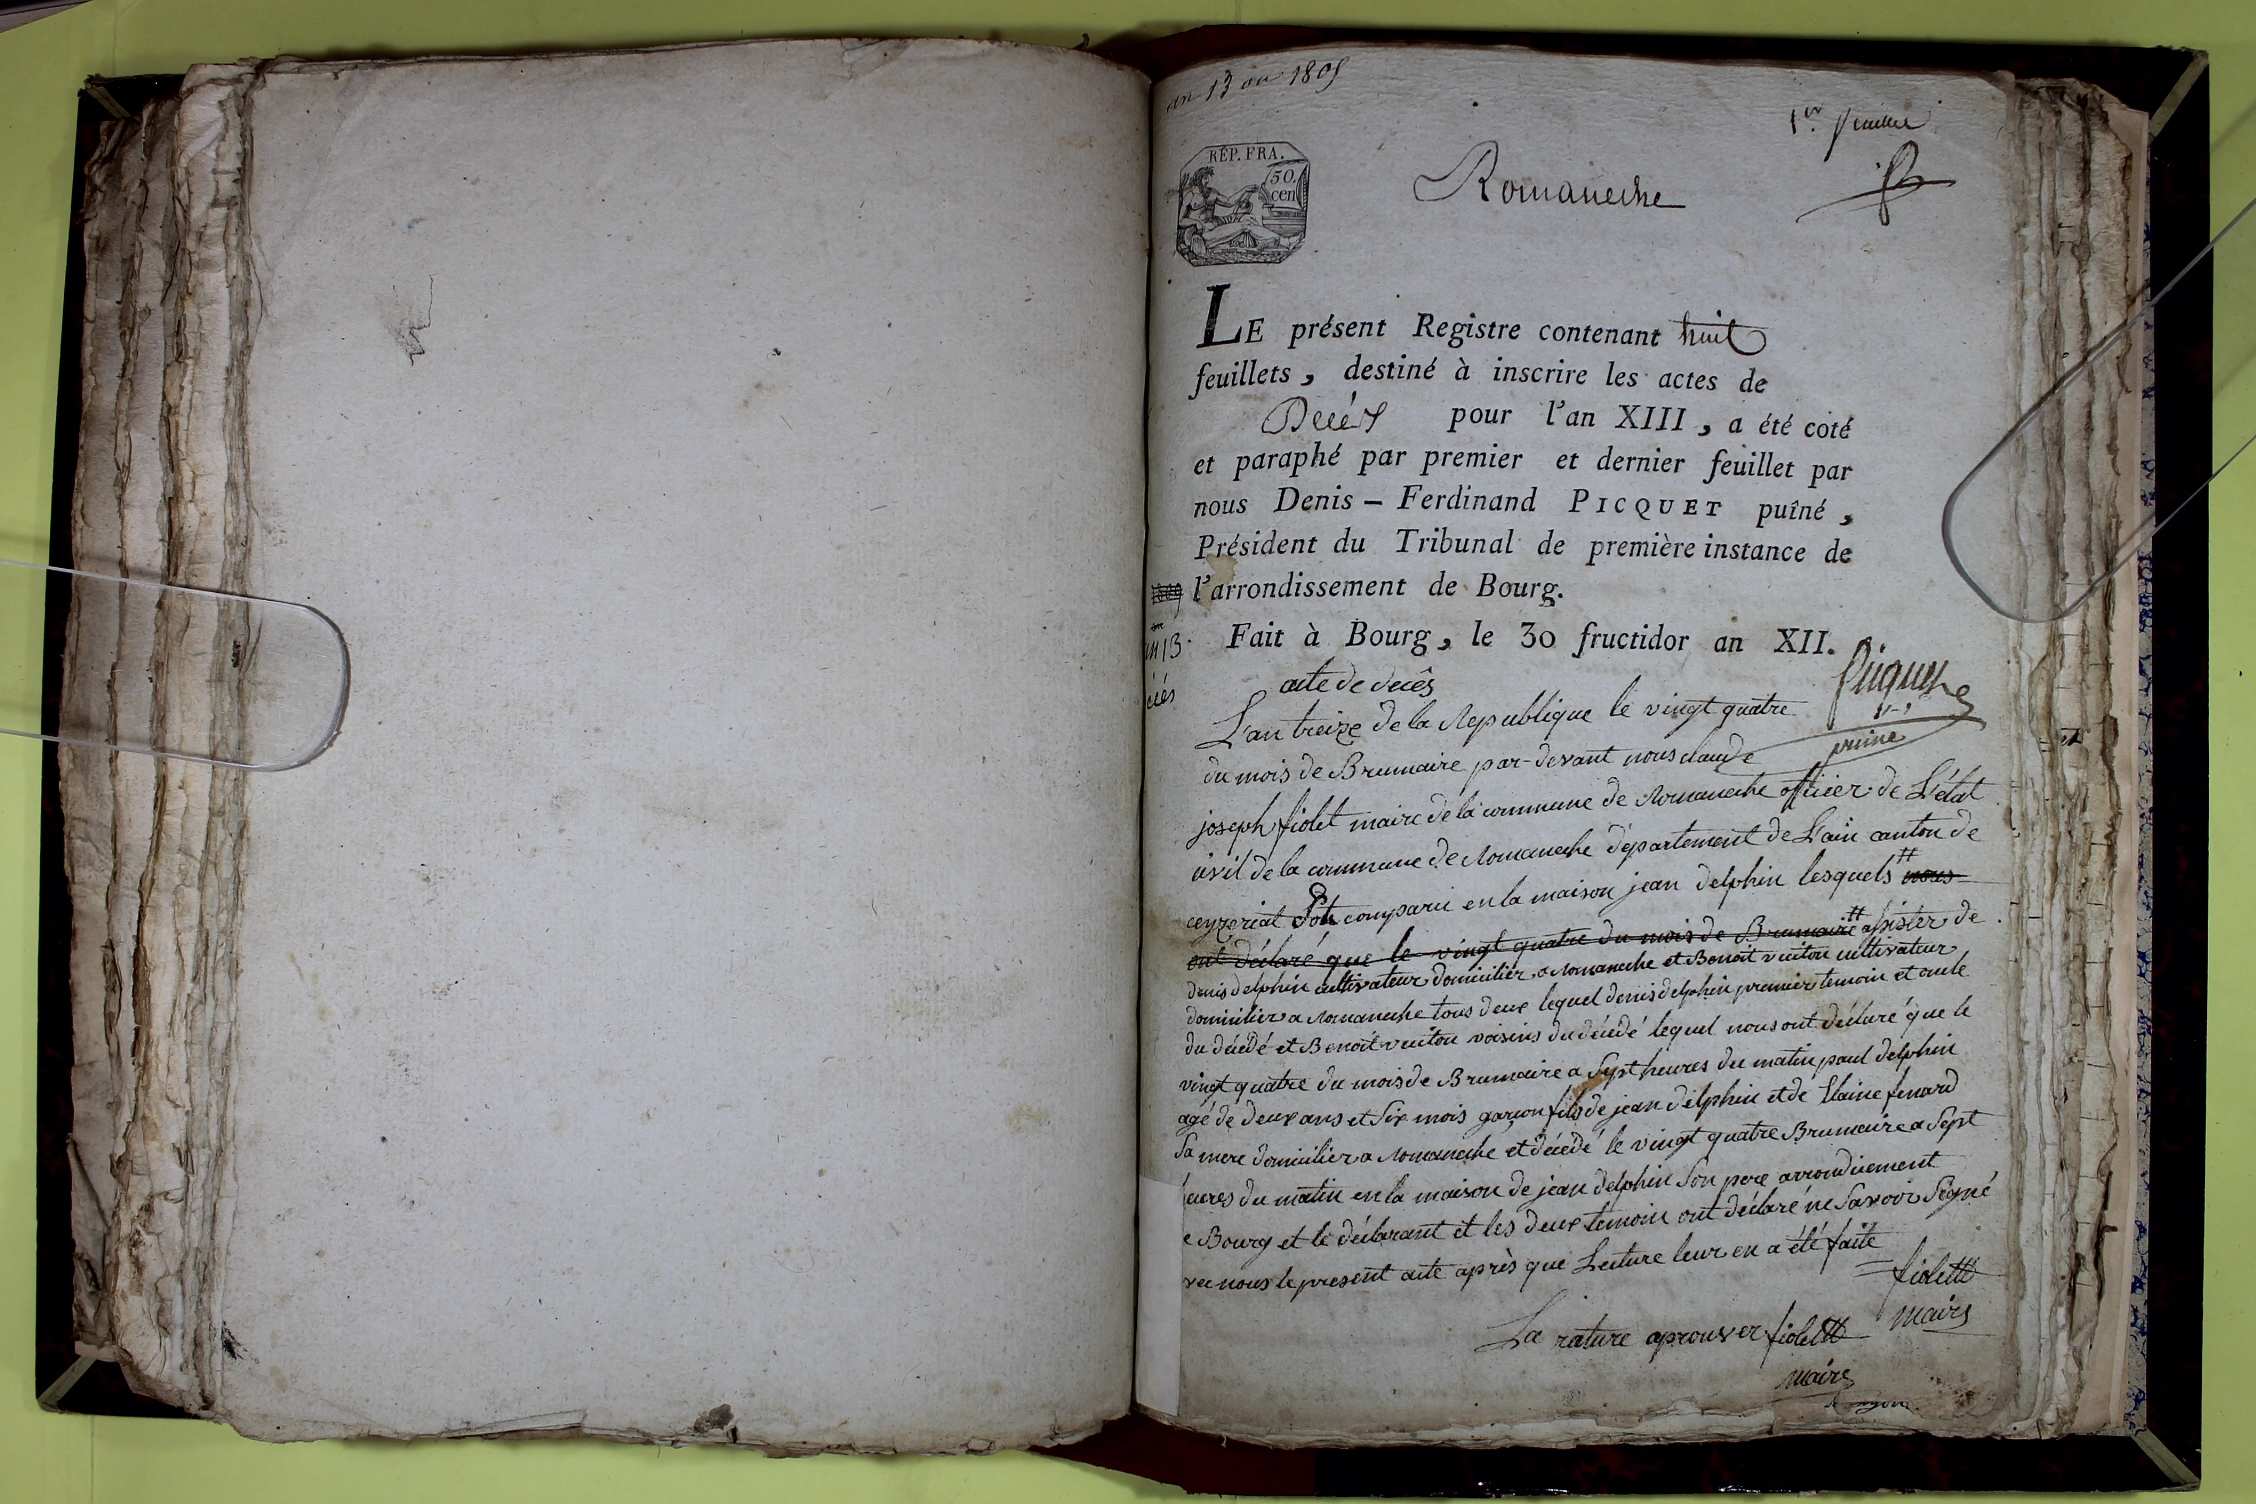 an 13 ou 1805
1er feuillet
RÉP. FRA.
50.
cen
Romaneche
LE présent Registre contenant huit
feuillets, destiné à inscrire les actes de
Décès pour l'an XIII, a été coté
et paraphé par premier et dernier feuillet par
nous Denis – Ferdinand PICQUET puîné,
Président du Tribunal de première instance de
l'arrondissement de Bourg.
Fait à Bourg, le 30 fructidor an XII.
an 13
Picquet
puiné
acte de decès
L'an treize de la Republique le vingt quatre
du mois de Brumaire par-devant nous claude
joseph fiolet maire de la commune de Romaneche officier de L'état
civil de la commune de Romaneche département de L'ain canton de
ceyzeriat Est comparu en la maison jean delphin lesquels # nous
ont déclaré que le vingt quatre du mois de Brumaire # assister de
denis delphin cultivateur domicilier a Romaneche et Benoit vuiton cultivateur
domicilier a Romaneche tous deux lequel denis delphin premier temoin et oncle
du décédé et Benoit vuiton voisins du décédé lequel nous ont déclaré que le
vingt quatre du mois de Brumaire a Sept heures du matin paul delphin
agé de deux ans et Six mois garçon fils de jean delphin et de Claine fenard
Sa mere domicilier a Romaneche et décédé le vingt quatre Brumaire a Sept
heures du matin en la maison de jean delphin Son pere arrondicement
e Bourg et le déclarant et les deux temoin ont déclaré ne Savoir Signé
vec nous le present acte après que Lecture leur en a été faite
fiolett
maire
La rature aprouver fiolett
maire